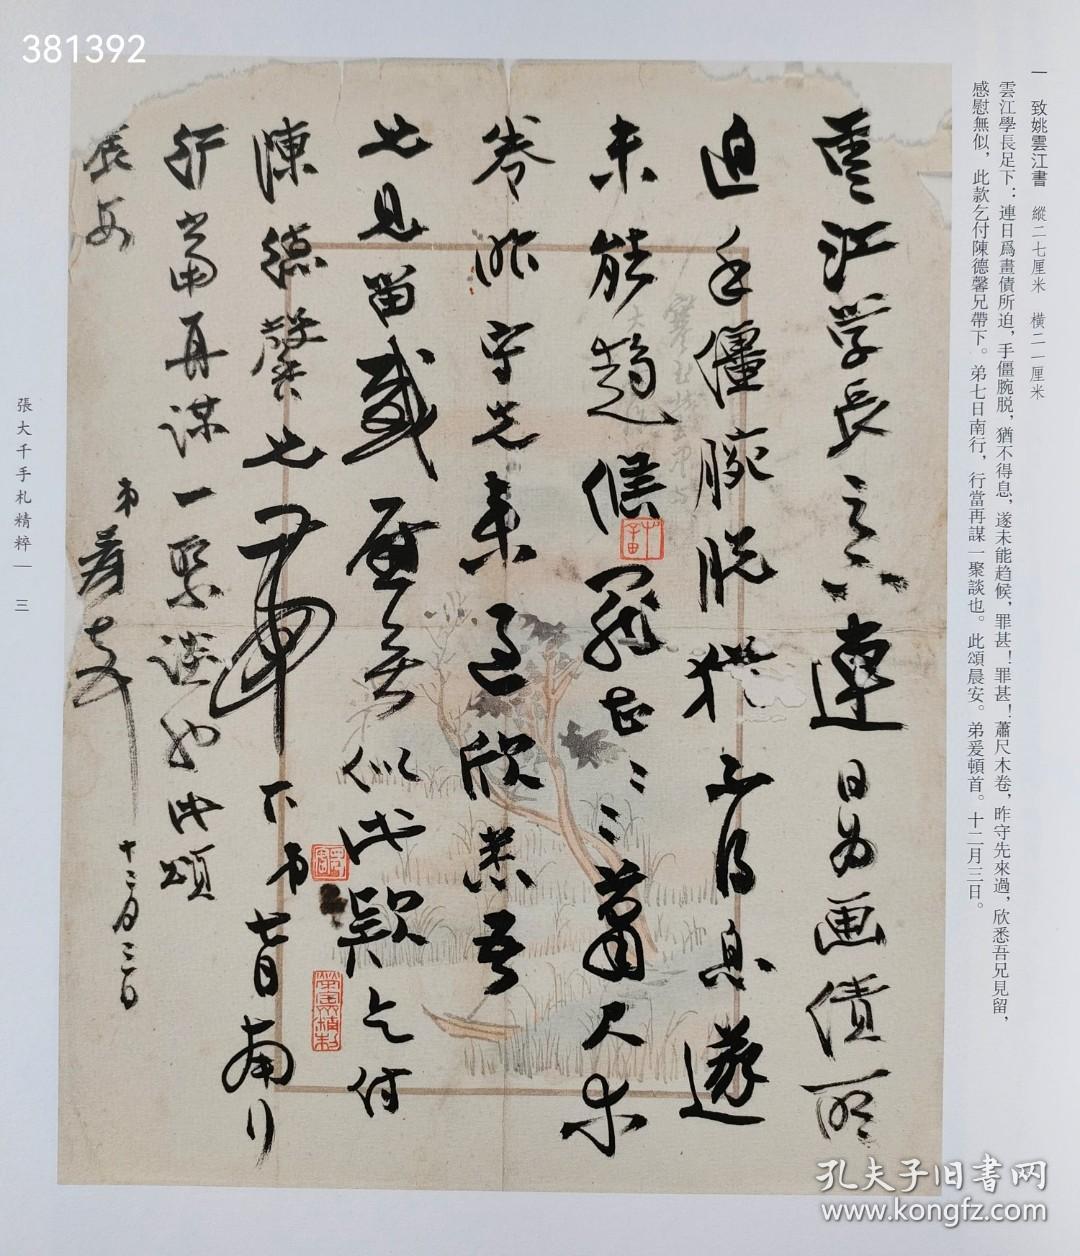 381392
一 致姚雲江書 縱二七厘米 橫二一厘米
雲江學長足下：連日爲畫債所迫，手僵腕脱，猶不得息，遂未能趋候，罪甚！罪甚！蕭尺木卷，昨守先來過，欣悉吾兄見留，
感慰無似，此款乞付陳德馨兄帶下。弟七日南行，行當再謀一聚談也。此頌晨安。弟爰頓首。十二月三日。
雲江学長足下連日为画债所
迫手僵腕脱猶不得息遂
未能趨候罪甚〻〻蕭尺木
卷昨守先来過欣悉吾
兄見留感慰無似此款乞付
陳德馨兄帶下弟七日南行
行當再謀一聚談也此頌
晨安
弟爰頓首
十二月三日
張大千手札精粹 — 三
孔夫子旧書网
www.kongfz.com